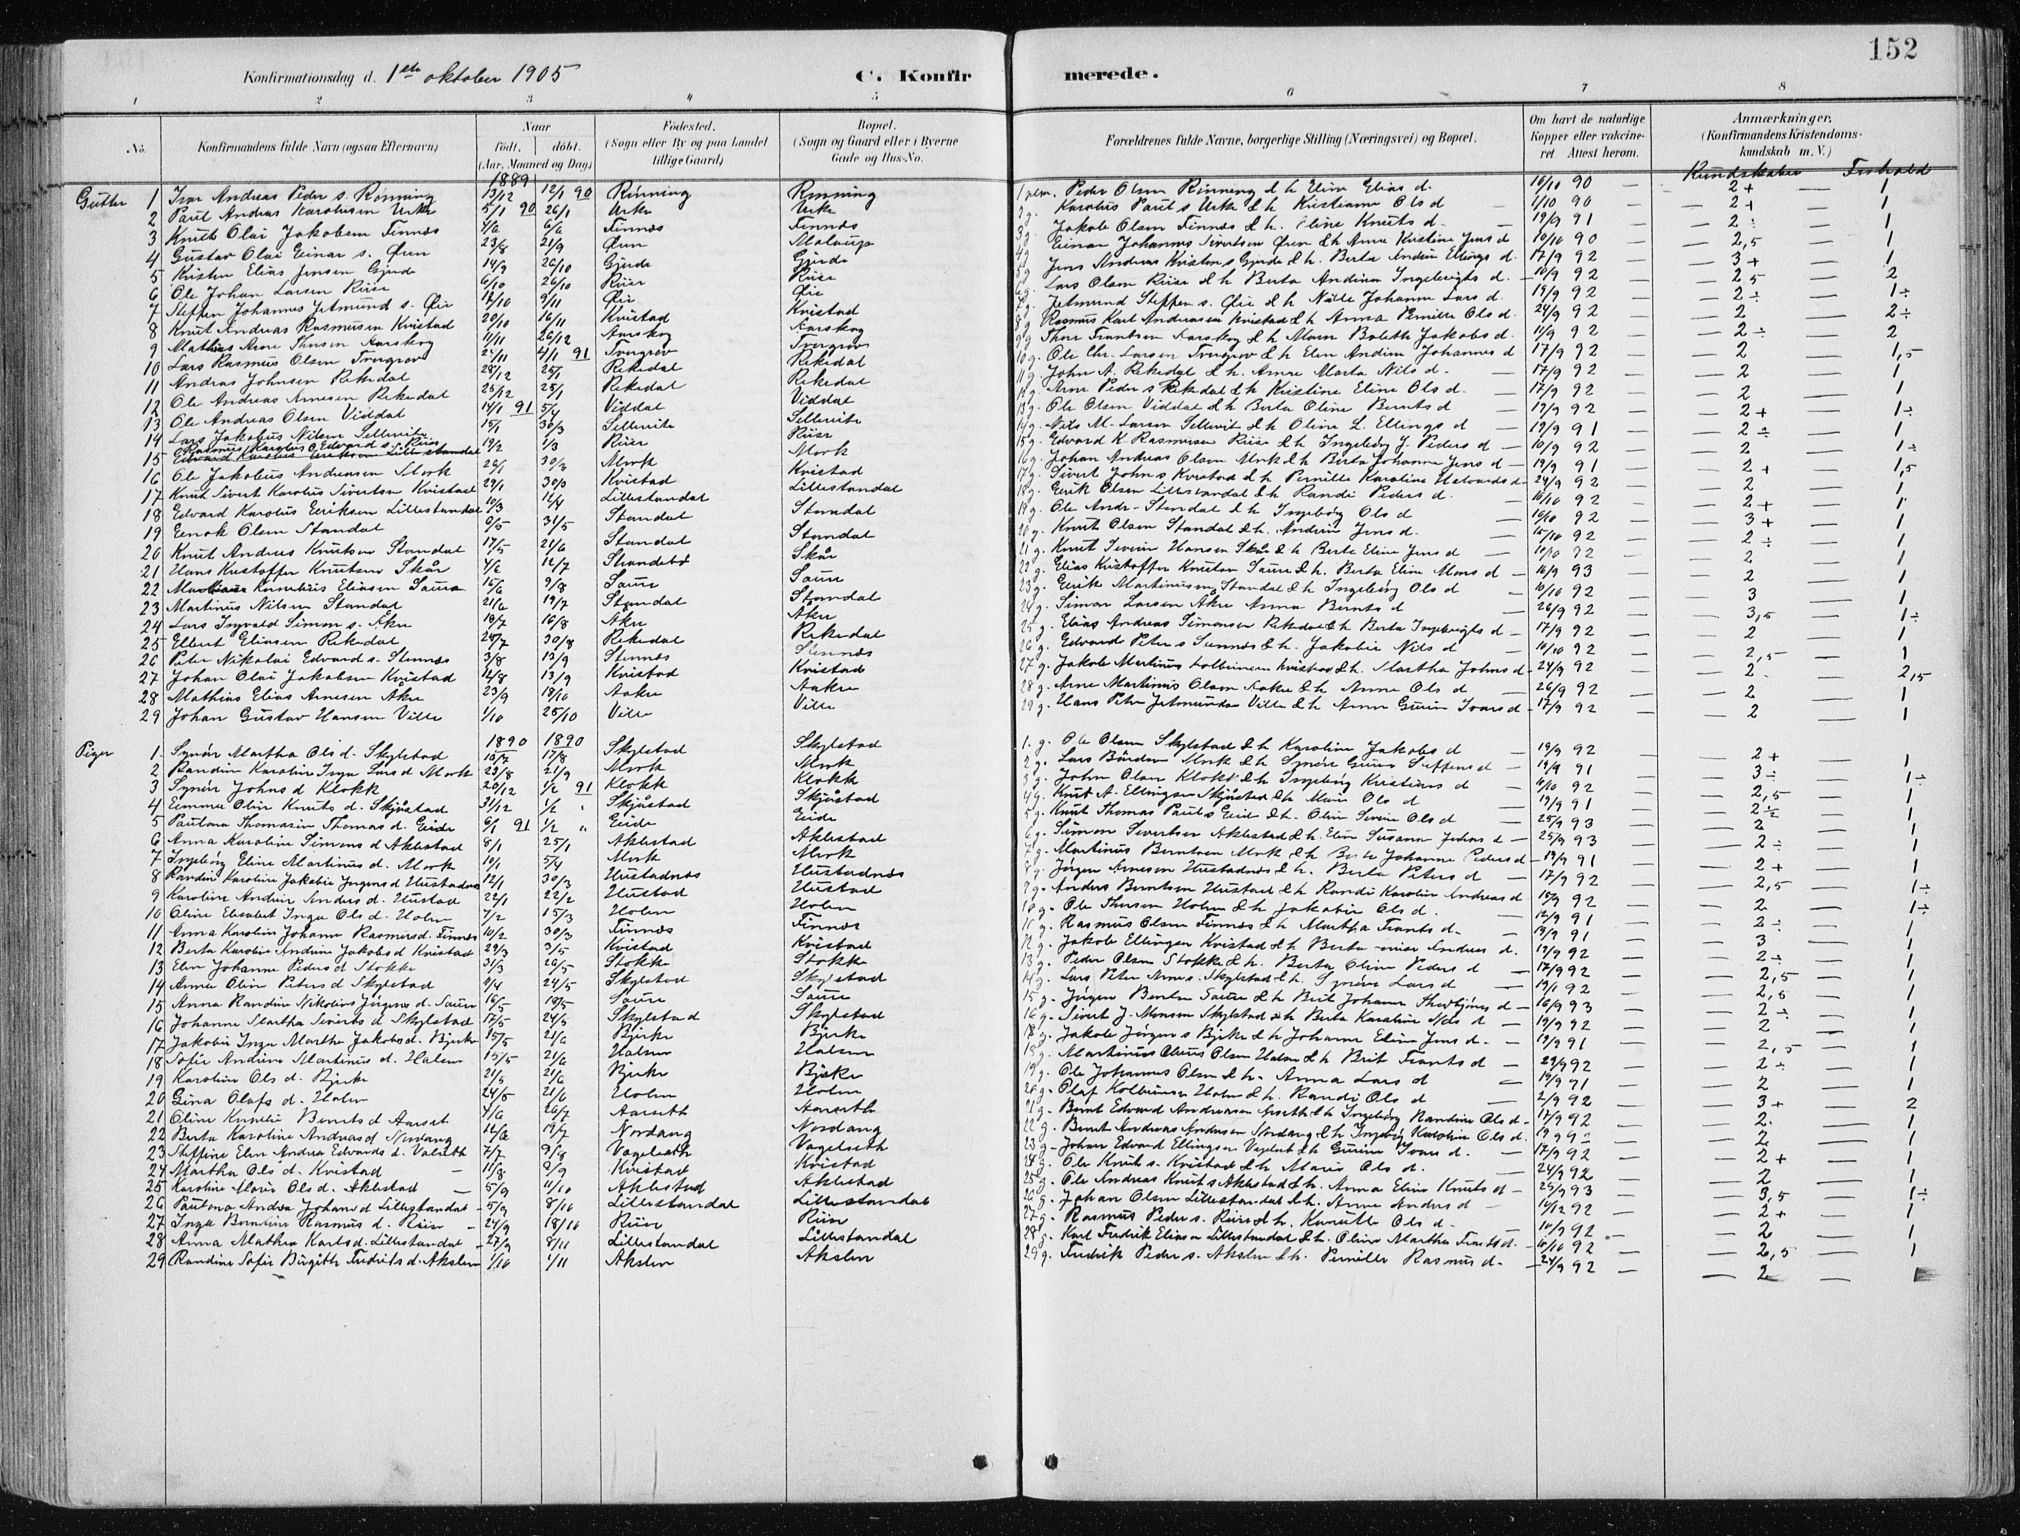 152
Konfirmationsdag d. 1ste oktober 1905 C. Konfir merede.
1 2 3 4 5 6 7 8
No.
Konfirmandens fulde Navn (ogsaa Efternavn)
Naar
født, døbt.
(Aar, Maaned og Dag)
Fødested.
(Sogn eller By og paa Landet
tillige Gaard)
Bopæl.
(Sogn og Gaard eller i Byerne
Gade og Hus-No.
Forældrenes fulde Navne, borgerlige Stilling (Næringsvei) og Bopæl.
Om havt de naturlige
Kopper eller vakcine-
ret Attest herom.
Anmærkninger.
(Konfirmandens Kristendoms-
kundskab m. V.)
Kundskaber Forhold
1889
Gutter 1 Ivar Andreas Peder s. Rønning 13/12 12/1 90 Rønning Rønning Peder Olsen Rønning & h Eline Elias d. 16/10 90 — 2+ 1
2 Paul Andreas Karolussen Urke 5/1 90 26/1 Urke Urke 2 g. Karolus Paul s Urke & h Kristianne Ols d 1/10 90 — 2+ — 1
3 Knut Olai Jakobsen Finnes 6/6 Finnes Finnes 3 g. Jakob Olsen Finnes & h. Eline Knuts d. 19/9 91 — 2÷ — 1
4 Gustav Olai Einar s. Øren 23/8 21/9 Øren Molaup 4 g. Einar Johannes Sivertsen Øren & h Anne Kristine Jens d 10/10 90 — 2,5 — 1
5 Kristen Elias Jensen Gjerde 14/9 26/10 Gjerde Gjerde 5 g. Jens Andreas Kristen s Gjerde & h. Berta Andrine Ellings d. 17/9 92 — 3+ — 1
6 Ole Johan Larsen Riise 6/10 26/10 Riise Riise 6 g. Lars Olsen Riise & h Berta Andrine Ingebrigts d. 10/9 92 — 2,5 — 2
7 Steffen Johannes Jetmund s. Øie 12/10 9/11 Øie Øie 7 g. Jetmund Steffen s. Øie & h Johanne Lars d. 19/9 92 — 2÷ — 1÷
8 Knut Andreas Rasmussen Kvistad 20/10 16/11 Kvistad Kvistad 8 g. Rasmus Karl Andreasen Kvistad & h Anna Pernille Ols d. 24/9 92 — 2 — 2÷
9 Mathias Arne Thorsen Aarskog 11/11 26/12 Aarskog Aarskog 9 g. Thore Frantsen Aarskog & h Maren Boleth Jakobs d. 11/9 92 — 2÷ — 2
10 Lars Rasmus Olsen Tvergrov 4/1 91 Tvergrov Tvergrov 10 g. Ole Chr. Larsen Tvergrov & h Elen Andrine Johannes d 17/9 92 — 2 — 1,5
11 Andreas Johnsen Rekedal 28/12 25/1 Rekedal Rekedal 11 g. John A. Rekedal & h. Anne Marta Nils d. 17/9 92 — 2 — 1
12 Ole Andreas Arnesen Rekedal 26/12 25/1 Rekedal Rekedal 12 g. Arne Peder s Rekedal & h Kristine Eline Ols d. 17/9 92 — 2 — 1
13 Ole Andreas Olsen Viddal 14/1 91 5/4 Viddal Viddal 13 g. Ole Olsen Viddal & h Berta Oline Bernts d 19/9 92 — 2+ — 1÷
14 Lars Jakobus Nilsen Sellevite 15/1 30/3 Sellevite Sellevite 14 g. Nils M. Larsen Sellevit & h Oline L. Ellings d 19/9 91 — 2÷ — 1
Rasmus Karolus Edvard s. Riise
15 Edvard Karolus Eriksen Lillestandal 19/2 1/3 Riise Riise 15 g. Edvard K Rasmussen Riise & h Ingeborg J. Peders d — 10/9 92 — 2 — 1÷
16 Ole Jakobus Andreasen Mork 26/1 30/3 Mork Mork 16 g. Johan Andreas Olsen Mork & h Berta Johanne Jens d — 19/9 91 — 2+ — 1,5
17 Knut Sivert Karolus Sivertsen Kvistad 29/1 30/3 Kvistad Kvistad 17 g. Sivert John s Kvistad & h Pernille Karoline d. 24/9 92 — 2 — 1
18 Edvard Karolus Eeriksen Lillestandal 10/3 12/4 Lillestandal Lillestandal 18 g. Eerik Olsen Lillestandal & h Randi Peders d. 16/10 92 — 2+ — 1
19 Eenok Olsen Standal 9/5 31/5 Standal Standal 19 g. Ole Andr. Standal & h Ingeborg Ols d 16/10 92 — 3+ — 1
20 Knut Andreas Knutsen Standal 17/5 21/6 Standal Standal 20 g. Knut Olsen Standal & h. Andrine Jens d. 15/10 92 — 2÷ — 1
21 Hans Kristoffer Knutsen Skår 4/6 12/7 Skår 21 g. Knut Severin Hansen Skår & h Berte Eline Jens d 10/10 92 — 2 — 1
22 Kornelius Eliasen Saure 16/6 9/8 Saure Saure 22 g. Elias Kristoffer Knutsen Saure & h. Berta Eline Mons d — 16/9 93 — 2 — 1
23 Martinus Nilsen Standal 21/6 19/7 Standal Standal 23 g. Eerik Martinussen Standal & h Ingeborg Ols d 10/10 92 — 3 — 1
24 Lars Ingvald Simon s. Akre 19/7 16/8 Åkre Åkre 24 g. Simon Larsen Akre Anna Bernts d 26/9 92 — 3,5 — 1÷
25 Elbert Eliasen Rekedal 28/7 30/8 Rekedal Rekedal 25 g. Elias Andreas Simonsen Rekedal & h Berta Ingebrigts d — 17/9 92 — 2 — 1
26 Peter Nikolai Edvard s. Stennes 3/8 13/9 Stennes Stennes 26 g. Edvard Peter s Stennes & h. Jakobie Nils d 10/10 92 — 2,5 — 1
27 Johan Olai Jakobsen Kvistad 12/8 13/9 Kvistad Kvistad 27 g. Jakob Martinus Kolbeinsen Kvistad & h Martha Johns d — 24/9 92 — 2 — 2,5
28 Mathias Elias Arnesen Akre 23/9 18/10 Aakre Aakre 28 g. Arne Martinus Olsen Aakre & h Anne Ols d — 26/9 92 — 2 — 1
29 Johan Gustav Hansen Ville 1/10 25/10 Ville Ville 29 g. Hans Peter Jetmundsen Ville & h Anne Gurine Ivars d — 17/9 92 — 2 — 1
1890 1890
Piger 1 Synøv Martha Ols d. Skylstad 15/7 17/8 Skylstad Skylstad 1. g. Ole Olsen Skylstad & h Karoline Jakobs d — 19/9 92 — 2+ — 1
2 Randine Karoline Inga Lars d Mork 23/8 21/9 Mork Mork 2 g. Lars Bårdsen Mork & h Synøv Gurine Steffens d — 19/9 91 — 3÷ — 1÷
3 Synøv Johns d Klokk 20/12 1/2 91 Klokk Klokk 3 g. John Olsen Klokk & h Ingeborg Kristians d — 10/10 92 — 2,5 — 1
4 Eemma Oline Knuts d. Skjåstad 31/12 1/2 „ Skjåstad Skjåstad 4 g. Knut A. Ellingsen Skjåstad & h Marie Ols d 19/9 91 — 2½ — 1
5 Paulona Thomasine Thomas d. Eide 6/1 91 1/2 „ Eide Eide 5 g. Knut Thomas Paul s Eide & h. Oline Severine Ols d — 25/9 93 — 2 — 1
6 Anna Karoline Simons d Aklestad 8/1 25/1 Aklestad Aklestad 6 g. Simon Sivertsen Aklestad & h. Eline Susanne Johans d — 25/9 93 — 2÷ — 1
7 Ingeborg Eline Martinus d. Mork 19/1 5/4 Mork Mork 7 g. Martinus Berntsen Mork & h Berte Johanne Peders d — 19/9 91 — 2+ — 1
8 Randine Karoline Jakobie Jørgens d Hustadnes 12/1 30/3 Hustadnes Hustadnes 8 g. Jørgen Arnesen Hustadnes & h. Berta Peters d — 17/9 92 — 2,5 — 1÷
9 Karoline Andrine Anders d. Hustad 22/1 22/2 Hustad Hustad 9 g. Anders Berntsen Hustad & h Randi Karoline Andreas d 19/9 92 — 2 — 1÷
10 Oline Elisabet Inga Ols d. Holen 7/2 15/3 Holen Holen 10 g. Ole Thorsen Holen & h Jakobie Ols d. 12/9 91 — 2÷ — 1
11 Anna Karoline Johanne Rasmus d. Finnes 10/2 30/3 Finnes Finnes 11 g. Rasmus Olsen Finnes & h Martha Frants d. 19/9 91 — 3 — 1
12 Berta Karoline Andrine Jakobs d Kvistad 29/3 3/5 Kvistad Kvistad 12 g. Jakob Ellingsen Kvistad & h Berta Andreas d. 19/9 92 — 2÷ — 1
13 Elen Johanne Peders d Stokke 31/3 26/5 Stokke Stokke 13 g. Peder Olsen Stokke & h. Berta Oline Peders d — 17/9 92 — 2,5 — 1
14 Anne Oline Peters d Skylstad 9/4 24/5 Skylstad Skylstad 14 g. Lars Peter Arne s. Skylstad & h Synøve Lars d 19/9 92 — 2,5 — 1
15 Anna Randine Nikoline Jørgens d. Saure 16/5 19/5 Saure Saure 15 g. Jørgen Bentsen Saure & h Brit Johanne d — 16/9 93 — 2÷ — 1
16 Johanne Martha Siverts d Skylstad 17/5 24/5 Skylstad Skylstad 16 g. Sivert J. Monsen Skylstad & h Berta Karoline Nils d — 19/9 92 — 2 — 1
17 Jakobie Inga Marthe Jakobs d. Bjerke 15/5 21/6 Bjerke Bjørke 18 g. Jakob Jørgen s Bjerke & h Johanne Eline Jens d. — 19/9 91 — 2,5 — 1
18 Sofie Andrine Martinus d. Holen 15/5 21/6 Holen Holen 18 g. Martinus Olsen Holen & h Brit Frants d. 29/9 92 — 2÷ — 1
19 Karoline Ols d. Bjerke 21/5 21/6 Bjerke Bjørke 19 g. Ole Johannes Olsen & h. Anna Lars d 19/9 91 — 2 — 1
20 Gina Olafs d. Holen 24/5 21/6 Holen Holen 20 g. Olaf Kolbeinsen Holen & h. Randi Ols d 2/9 92 — 3+ — 2
21 Oline Kornelie Bernts d Aarset 4/6 26/7 Aarseth Aarseth 21 g. Bernt Edvard Andreasen Aarseth & h Ingeborg Randine Ols d. 17/9 92 — 2. — 1
22 Berta Karoline Andreas d Nordang 12/6 19/7 Nordang Nordang 22 g. Bernt Andreas Andersen Nordang & h Ingeborg Karoline Ols d. 19/9 92 — 2 — 1
23 Steffine Elen Andrea Edvards d. Valseth 7/7 9/8 Vagelseth Vagelseth 23 g. Johan Edvard Ellingsen Vagelset & h Gurine Ivars d. — 17/9 92 — 2+ — 1
24 Martha Ols d. Kvistad — 11/8 9/9 Kvistad Kvistad 24 g. Ole Knut s. Kvistad & h Marie Ols d. 24/9 92 — 2 — 1
25 Karoline Marie Ols d. Aklestad — 5/9 11/10 Aklestad Aklestad 25 g. Ole Andreas Knut s Aklestad & h. Anna Eline Knuts d — 25/9 93 — 3,5 — 1÷
26 Paulona Andrea Johans d Lillestandal 5/9 8/10 Lillestandal Lillestandal 26 g. Johan Olsen Lillestandal & h. Anne Anders d — 10/12 92 — 2+ — 1
27 Inga Berntine Rasmus d. Riise — 24/9 18/10 Riise Riise 27 g. Rasmus Peder s. Riise & h. Kanutte Ols d. 10/9 92 — 2 — 1
28 Anna Mathea Karls d. Lillestandal 27/9 8/11 Lillestandal Lillestandal 28 g. Karl Fredrik Eliasen Lillestandal & h. Oline Martha Frants d. — 10/10 92 — 2,5 — 1
29 Randine Sofie Birgitte Fredriks d. Akslen 1/10 1/11 Akslen Akslen 29 g. Fredrik Peder s. Akslen & h. Pernille Rasmus d. — 24/9 92 — 2 —